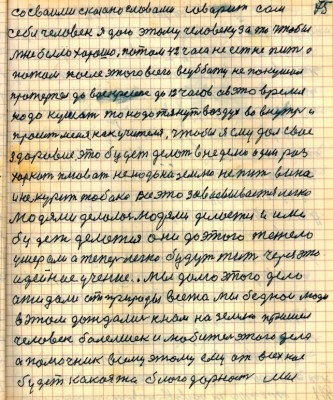 75
со своими сказано словами говорит сам
себе человек я даю этому человеку за то чтобы
мне было хорошо, потом 42 часа не есть не пить а
потом после этого всего в субботу не покушал
протерпел до воскресенье до 12 часов в это время
надо кушать то надо тянуть воздух во внутрь и
просит меня как учителя, чтобы я ему дал свое
здоровие это будет делать в неделю один раз
харкать плювать не надо на землю не пить вина
и не курить табака Все это завоевывается легко
Людями делалось людями делается и ими
будет делатся они до этого тяжело
умерали а теперь легко будут жить через это
идейное учение.. Мы долго этого дела
ожидали от природы все та мы бедной люди
в этом дождались к нам на землю пришел
человек болельщик и любитель этого дела
а помочник всему этому ему от всех нас
будет какаята благодарность Мы